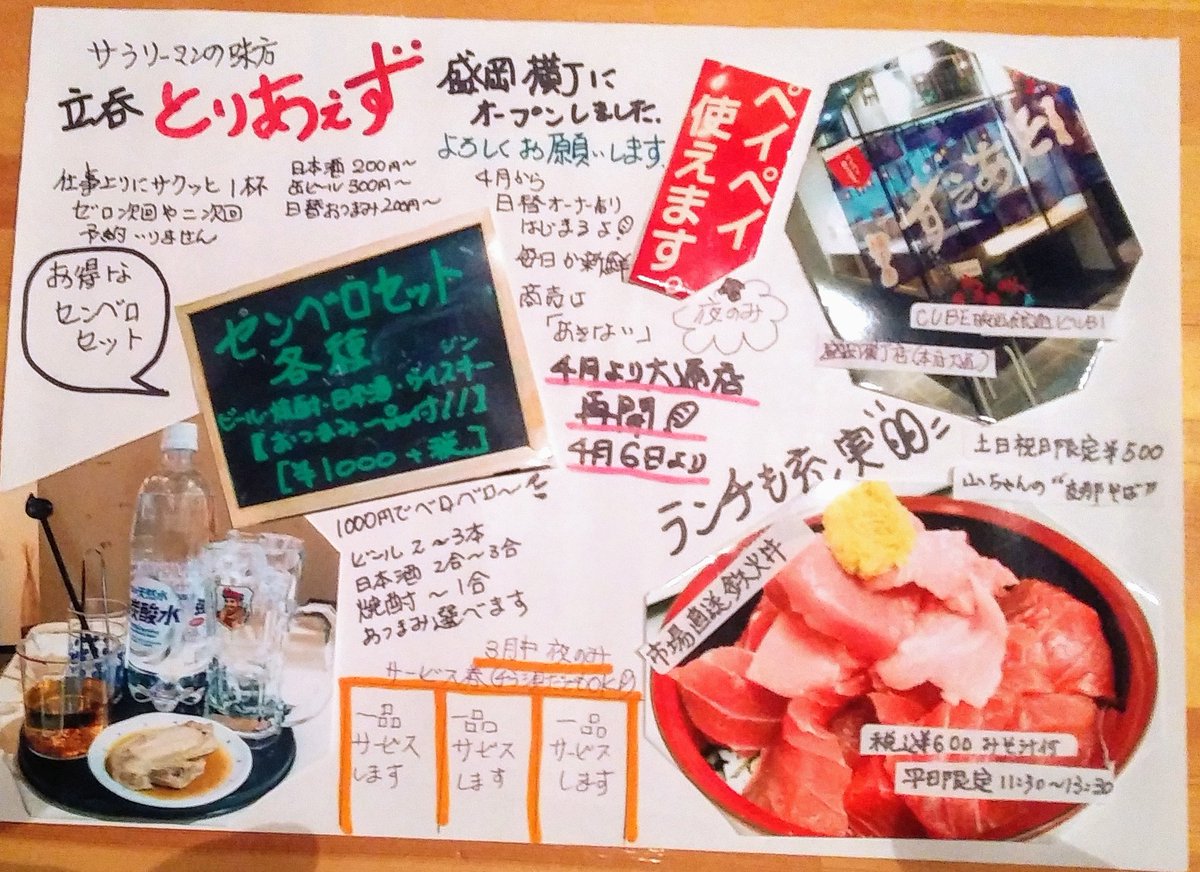 サラリーマンの味方
立呑 とりあえず
仕事上りにサクッと1杯
ゼロ次回や二次回
予約いりません
日本酒 200円〜
缶ビール 300円〜
日替おつまみ 200円〜
盛岡横丁に
オープンしました
よろしくお願いします
4月から
日替オーナー制り
はじまるよ!
毎日が新鮮
商売は
「あきない」
ペイペイ
使えます。
夜のみ
4月より大通店
再開
4月6日より
お得な
センベロ
セット
センベロセット
各種
ジン
ビール・焼酎・日本酒・ウイスキー
【おつまみ一品付!!】
[¥1000+税]
1000円でベロベロ〜
ビール 2〜3本
日本酒 2合〜3合
焼酎 〜1合
おつまみ選べます
3月中 夜のみ
サービス券
一品
サービス
します
一品
サービス
します
一品
サービス
します
とりあえず
CUBE
盛岡横丁店(本店大通)
ランチも充実
土日祝日限定¥500
山ちゃんの"支那そば"
市場直送 鉄火丼
税込¥600 みそ汁付
平日限定 11:30〜13:30
炭酸水